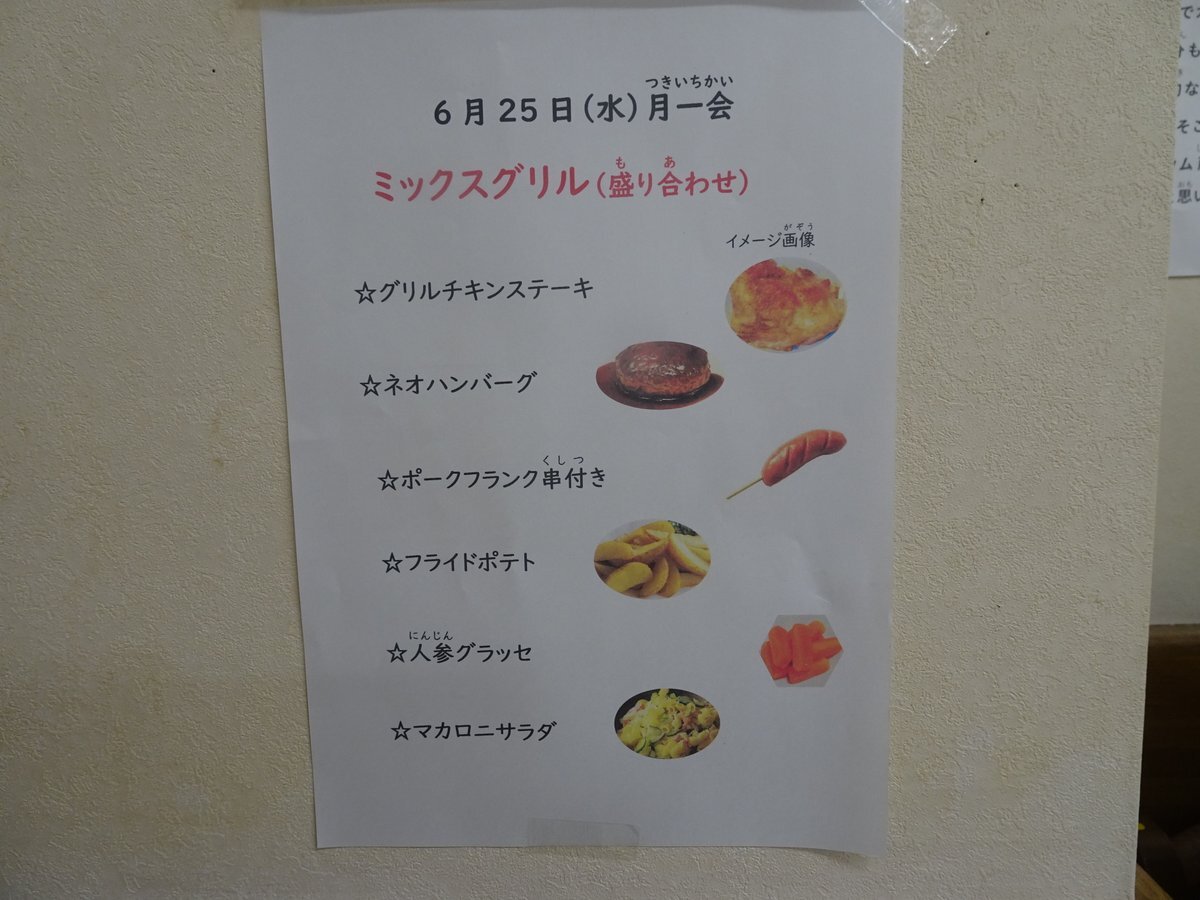 つきいちかい
6月25日(水)月一会
も あ
ミックスグリル(盛り合わせ)
がぞう
イメージ画像
☆グリルチキンステーキ
☆ネオハンバーグ
くしつ
☆ポークフランク串付き
☆フライドポテト
にんじん
☆人参グラッセ
☆マカロニサラダ
そこ
思い